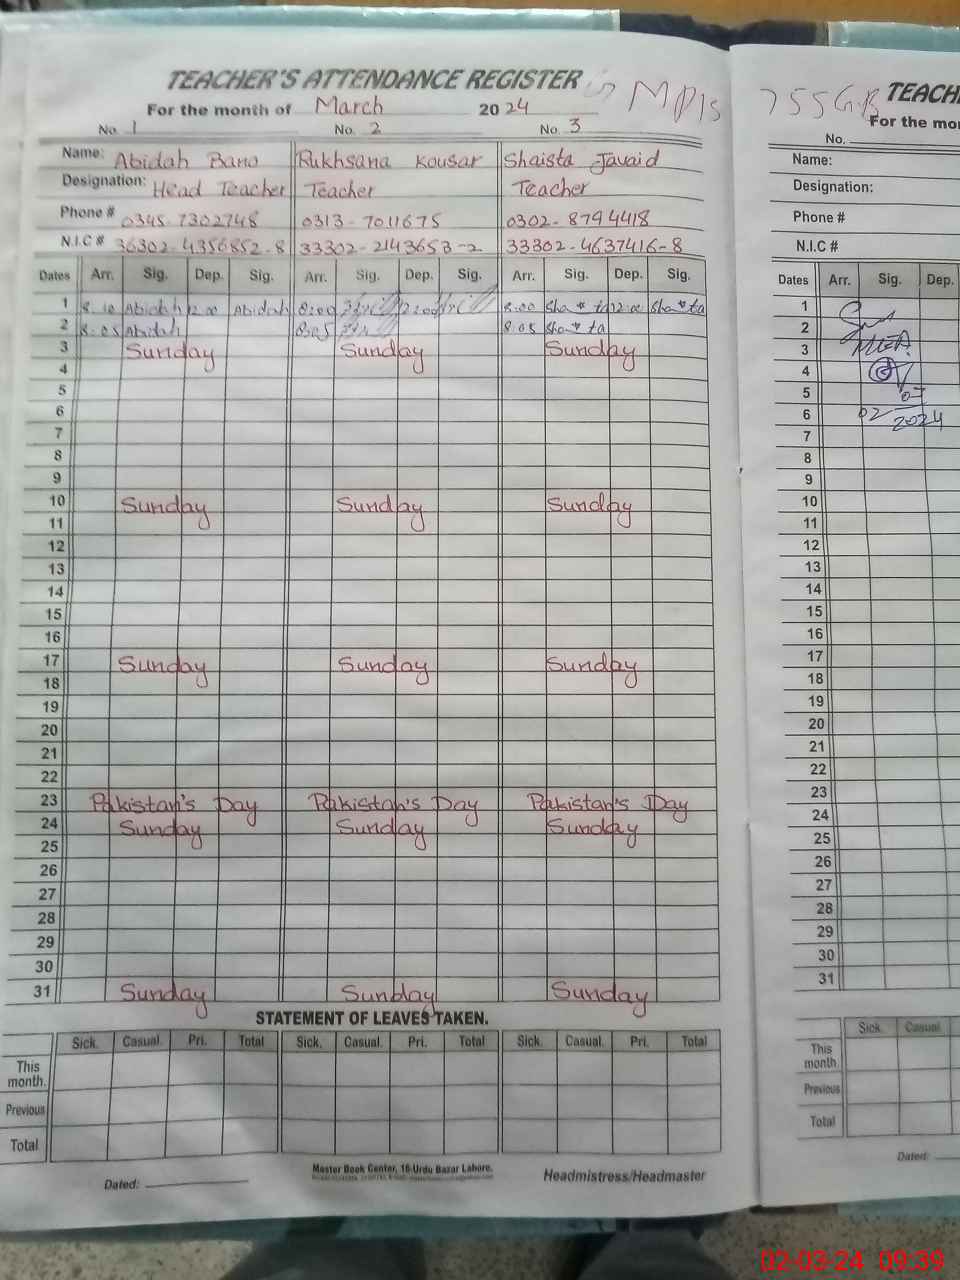 TEACHER'S ATTENDANCE REGISTER
For the month of March 2024
No. 1 No. 2 No. 3
Name: Abidah Bano Rukhsana Kousar Shaista Javaid
Designation: Head Teacher Teacher Teacher
Phone # 0345-7302748 0313-7011675 0302-8794418
N.I.C # 36302-4356852-8 33302-2143653-2 33302-4637416-8
Dates Arr. Sig. Dep. Sig. Arr. Sig. Dep. Sig. Arr. Sig. Dep. Sig.
1 8.10 Abidah 12.00 Abidah 8:00 12:00 8.00 Sha*ta 12:00 Sha*ta
2 8.05 Abidah 8:05 8.05 Sha*ta
3 Sunday Sunday Sunday
4
5
6
7
8
9
10 Sunday Sunday Sunday
11
12
13
14
15
16
17 Sunday Sunday Sunday
18
19
20
21
22
23 Pakistan's Day Pakistan's Day Pakistan's Day
24 Sunday Sunday Sunday
25
26
27
28
29
30
31 Sunday Sunday Sunday
STATEMENT OF LEAVES TAKEN.
Sick. Casual. Pri. Total Sick. Casual. Pri. Total Sick. Casual. Pri. Total
This month.
Previous
Total
Dated:
Master Book Center, 16-Urdu Bazar Lahore.
Headmistress/Headmaster
755G.B TEACH
For the mo
No.
Name:
Designation:
Phone #
N.I.C #
Dates Arr. Sig. Dep.
1
2
3 MEA.
4
5 03
6 02 2024
7
8
9
10
11
12
13
14
15
16
17
18
19
20
21
22
23
24
25
26
27
28
29
30
31
Sick. Casual
This month
Previous
Total
Dated:
02-03-24 09:39